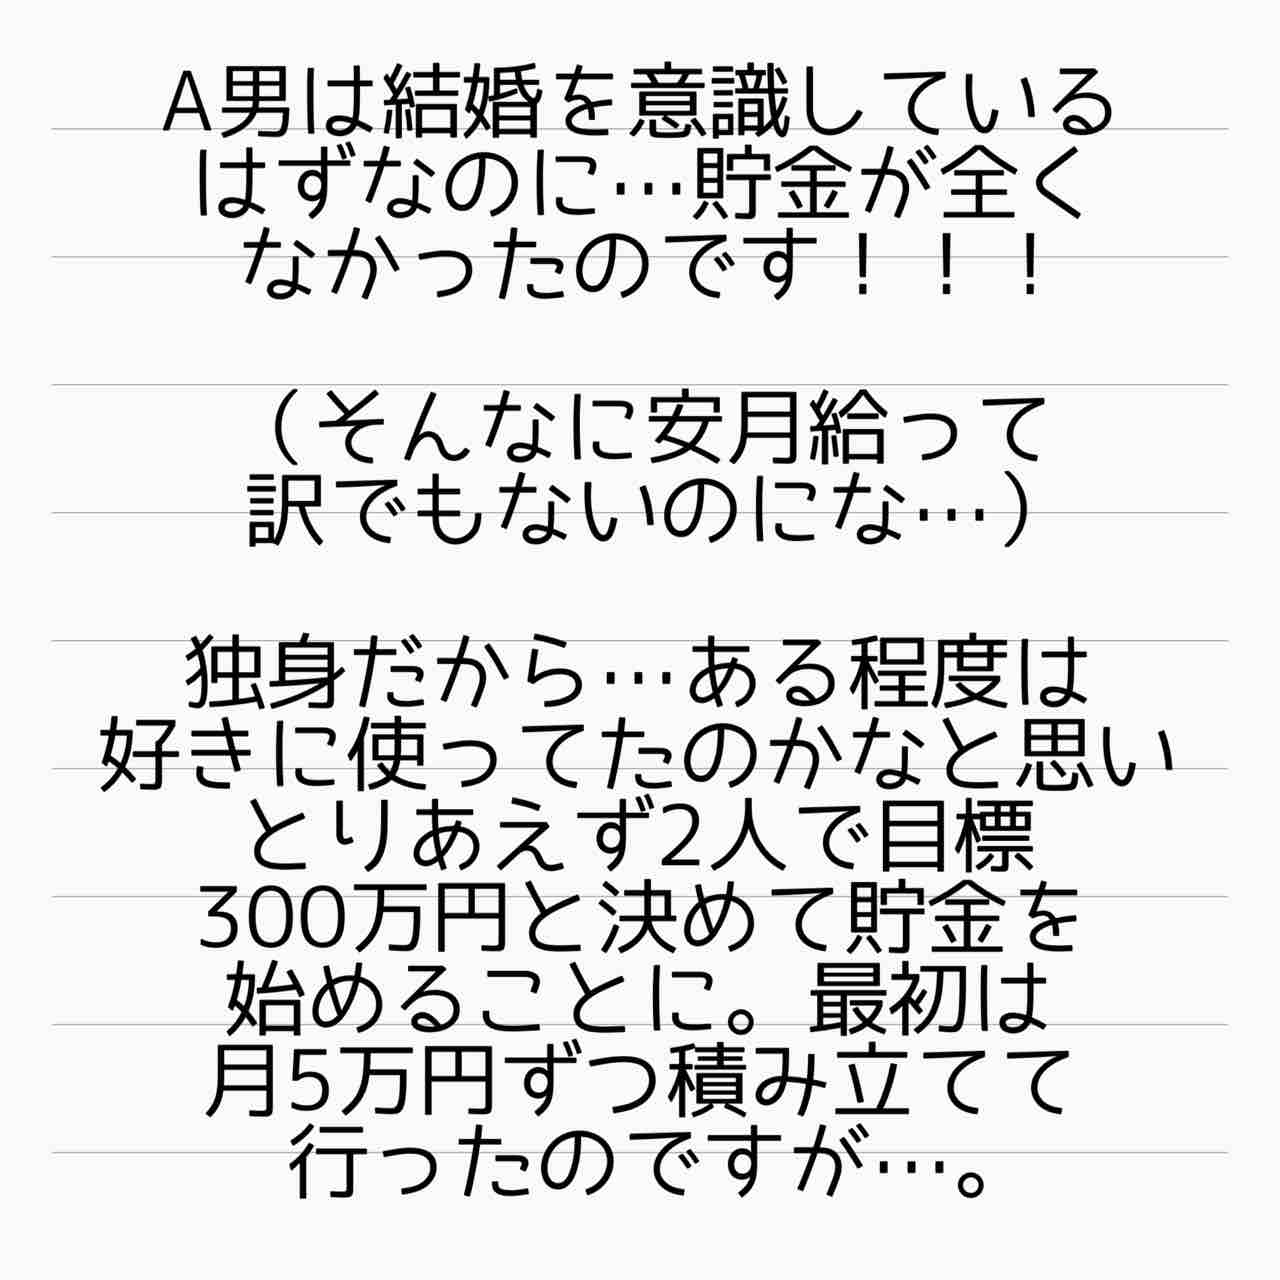 A男は結婚を意識している
はずなのに…貯金が全く
なかったのです！！！
（そんなに安月給って
訳でもないのにな…）
独身だから…ある程度は
好きに使ってたのかなと思い
とりあえず2人で目標
300万円と決めて貯金を
始めることに。最初は
月5万円ずつ積み立てて
行ったのですが…。